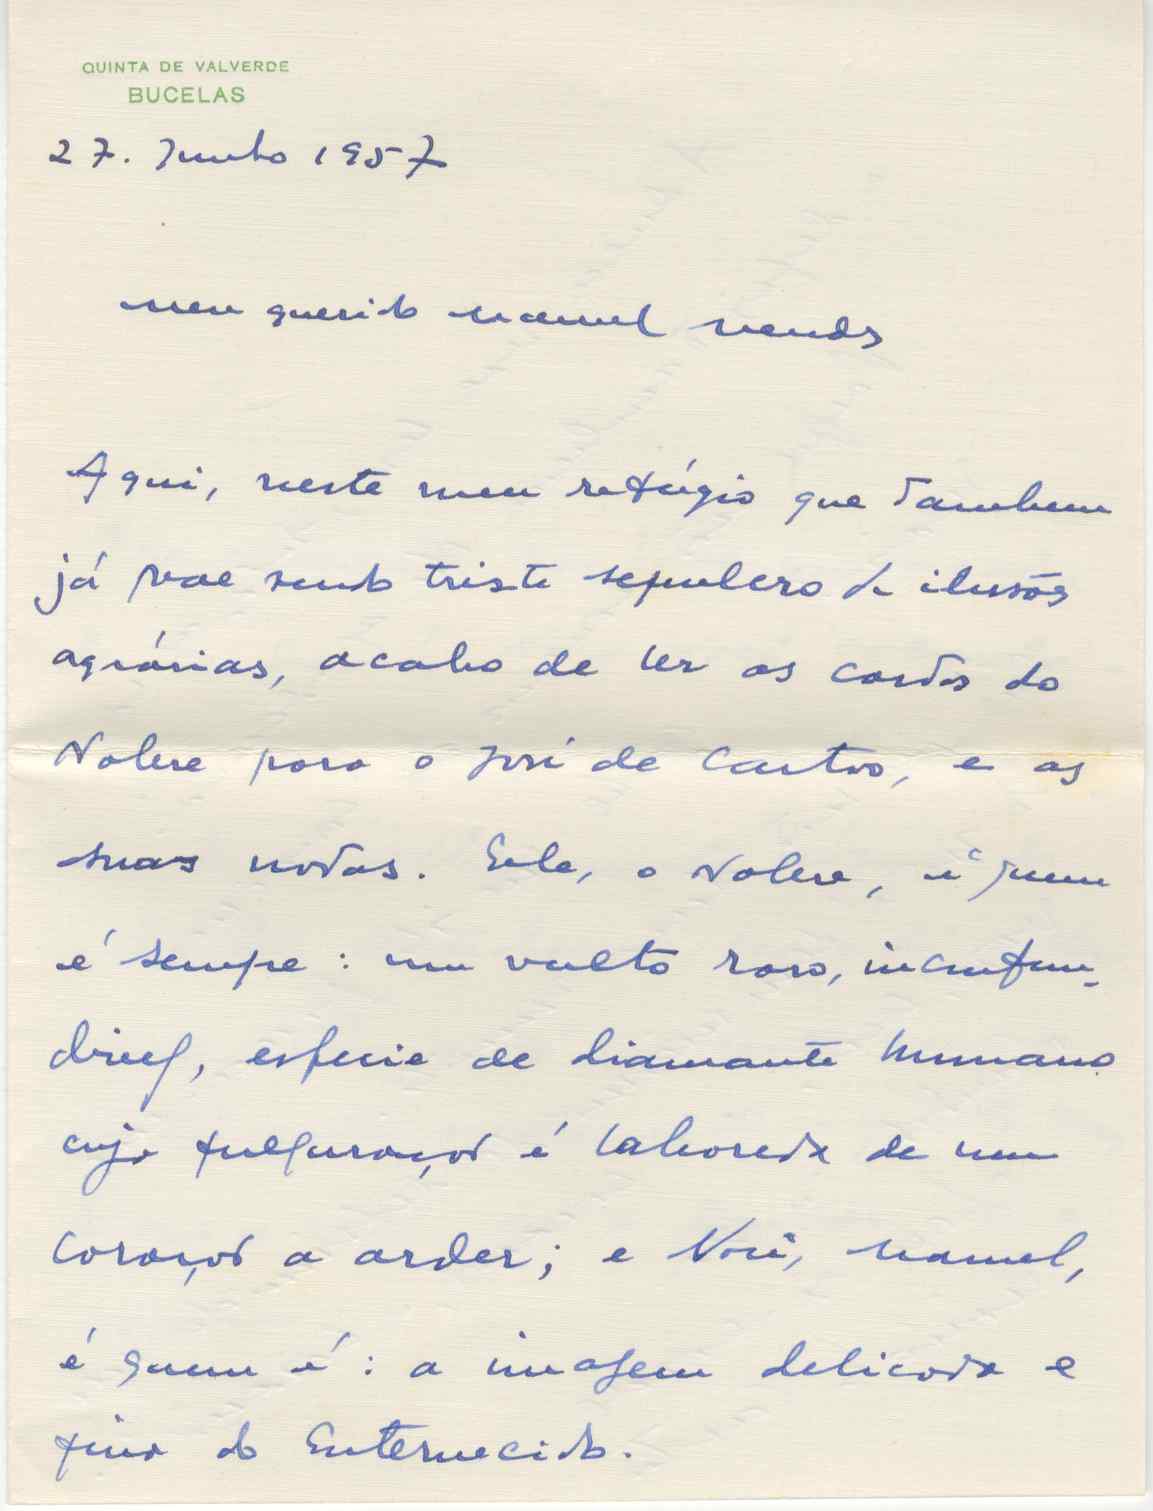 QUINTA DE VALVERDE
BUCELAS
27. Junho 1957
Meu querido Manuel Mendes
Aqui, neste meu refúgio que tambem
já vae sendo triste sepulcro de ilusões
agrárias, acabo de ler as cartas do
Nobre para o José de Castro, e as
suas notas. Ele, o Nobre, é quem
é sempre: um vulto raro, inconfun-
divel, especie de diamante humano
cuja fulguração é labareda de um
coração a arder; e Você, Manuel,
é quem é: a imagem delicada e
fina do Enternecido.